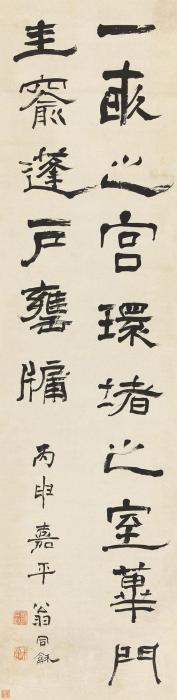 一畝之宮環堵之室蓽門
圭窬蓬戶甕牖
丙申嘉平
翁同龢